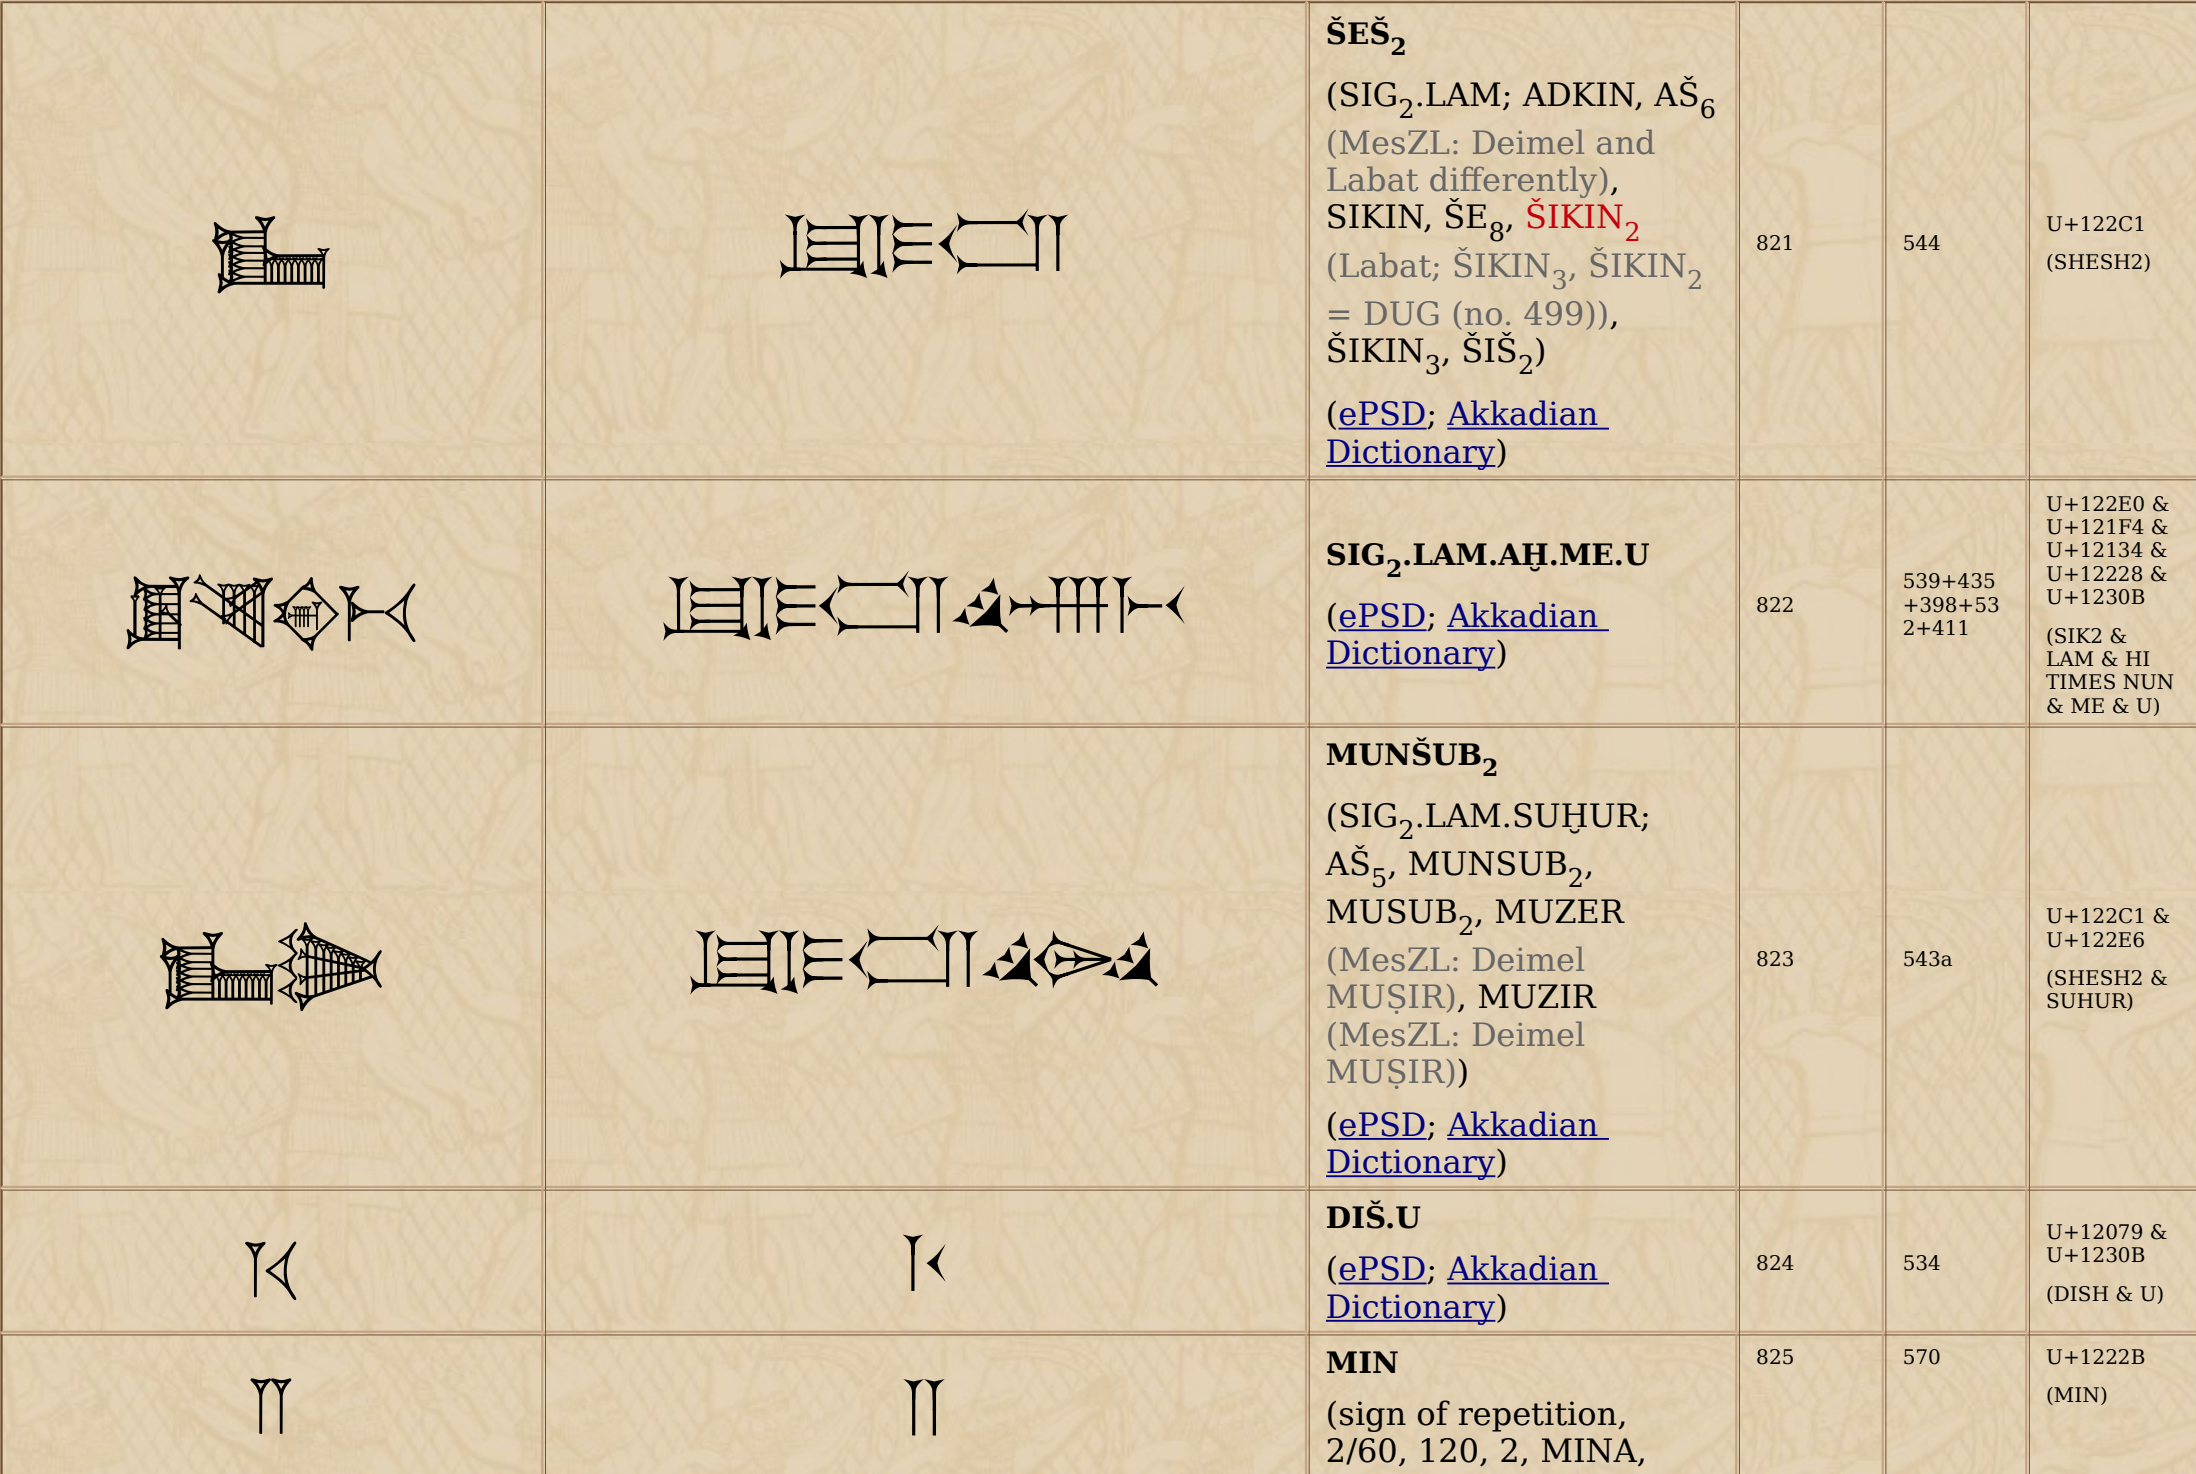 ŠEŠ₂
(SIG₂.LAM; ADKIN, AŠ₆
(MesZL: Deimel and
Labat differently),
SIKIN, ŠE₈, ŠIKIN₂
(Labat; ŠIKIN₃, ŠIKIN₂
= DUG (no. 499)),
ŠIKIN₃, ŠIŠ₂)
(ePSD; Akkadian
Dictionary)
821
544
U+122C1
(SHESH2)
SIG₂.LAM.AḪ.ME.U
(ePSD; Akkadian
Dictionary)
822
539+435
+398+53
2+411
U+122E0 &
U+121F4 &
U+12134 &
U+12228 &
U+1230B
(SIK2 &
LAM & HI
TIMES NUN
& ME & U)
MUNŠUB₂
(SIG₂.LAM.SUḪUR;
AŠ₅, MUNSUB₂,
MUSUB₂, MUZER
(MesZL: Deimel
MUṢIR), MUZIR
(MesZL: Deimel
MUṢIR))
(ePSD; Akkadian
Dictionary)
823
543a
U+122C1 &
U+122E6
(SHESH2 &
SUHUR)
𒁹𒌋
𒁹𒌋
DIŠ.U
(ePSD; Akkadian
Dictionary)
824
534
U+12079 &
U+1230B
(DISH & U)
𒈫
𒈫
MIN
(sign of repetition,
2/60, 120, 2, MINA,
825
570
U+1222B
(MIN)